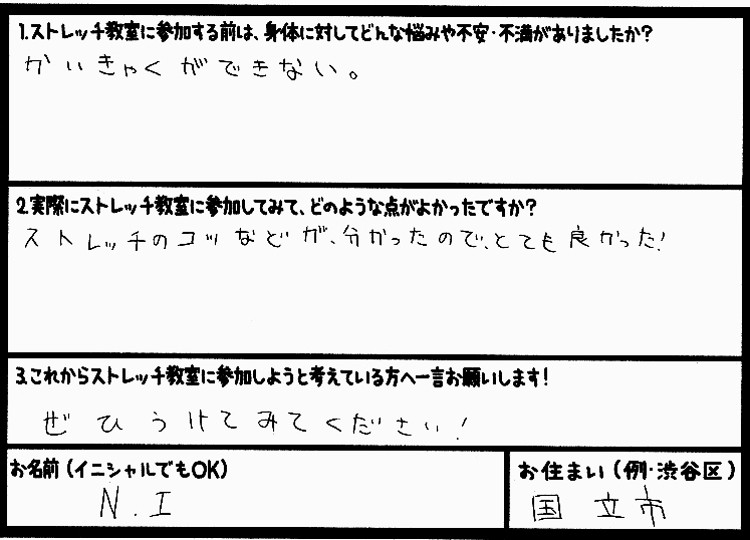 1.ストレッチ教室に参加する前は、身体に対してどんな悩みや不安・不満がありましたか?
かいきゃくができない。
2.実際にストレッチ教室に参加してみて、どのような点がよかったですか?
ストレッチのコツなどが、分かったので、とても良かった!
3.これからストレッチ教室に参加しようと考えている方へ一言お願いします!
ぜひうけてみてください!
お名前(イニシャルでもOK)
N.I
お住まい(例・渋谷区)
国立市